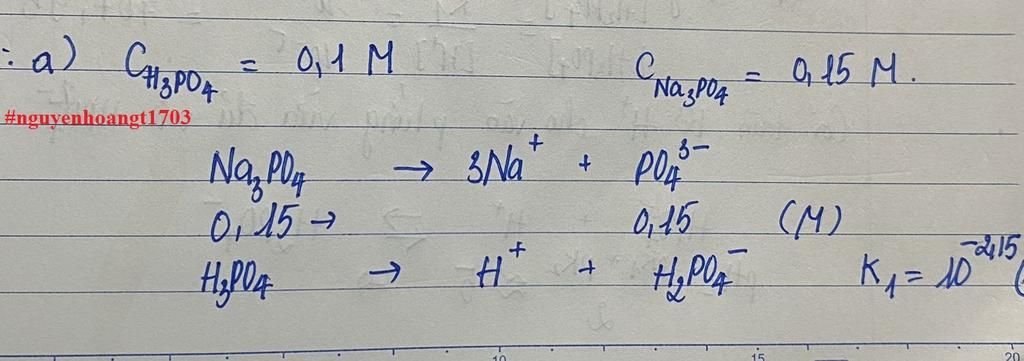 : a) C_H₃PO₄ = 0,1 M C_Na₃PO₄ = 0,15 M.
#nguyenhoangt1703
Na₃PO₄ → 3Na⁺ + PO₄³⁻
0,15 → 0,15 (M)
H₃PO₄ → H⁺ + H₂PO₄⁻ K₁ = 10⁻²,¹⁵ (
10 15 20